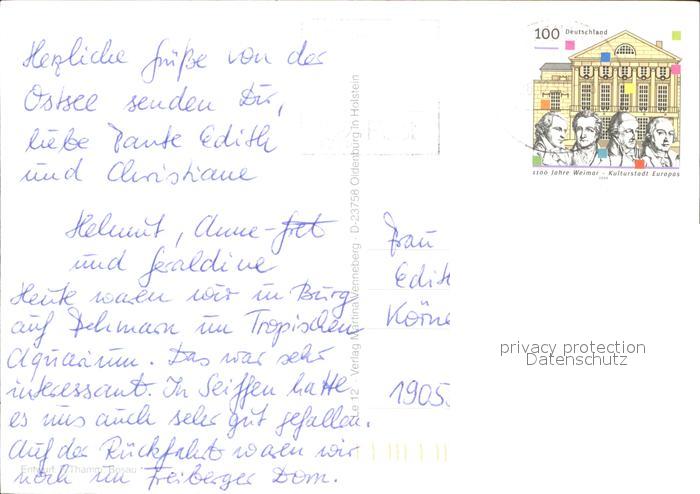 Herzliche Grüße von der
Ostsee senden Dir,
liebe Tante Edith
und Christiane
Helmut, Anne-Gret
und Geraldine
Heute waren wir in Burg
auf Fehmarn im Tropischen
Aquarium. Das war sehr
interessant. In Seiffen hatte
es uns auch sehr gut gefallen.
Auf der Rückfahrt waren wir
noch im Freiberger Dom.
Le 12 · Verlag Martina Venneberg · D-23758 Oldenburg in Holstein
100 Deutschland
1100 Jahre Weimar - Kulturstadt Europas
1999
Frau
Edith
Körne
1905
privacy protection
Datenschutz